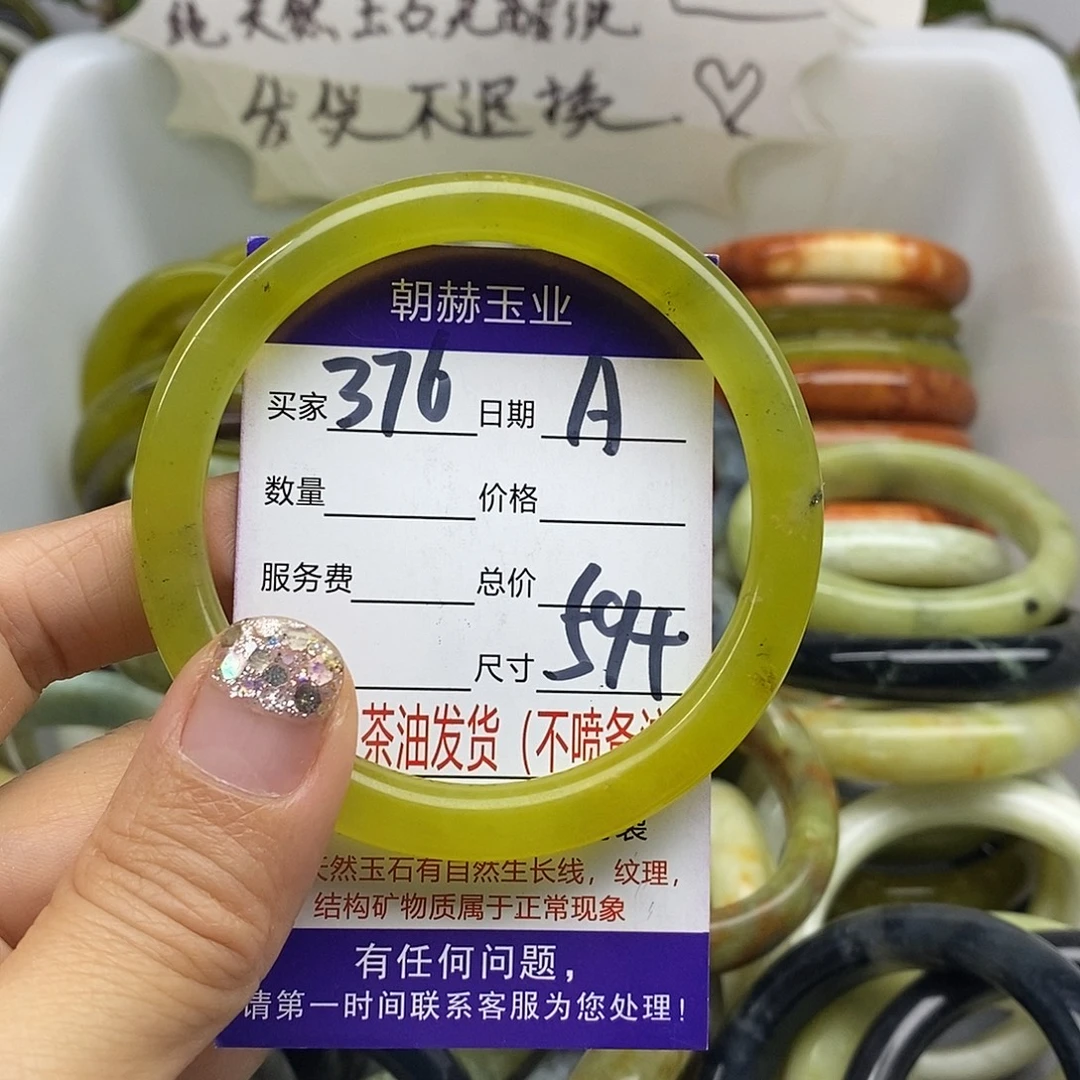 纯天然玉石
售货不退换
朝赫玉业
买家 376 日期 A
数量 价格
服务费 总价
尺寸 594
茶油发货（不喷备注
天然玉石有自然生长线，纹理，
结构矿物质属于正常现象
有任何问题，
请第一时间联系客服为您处理！